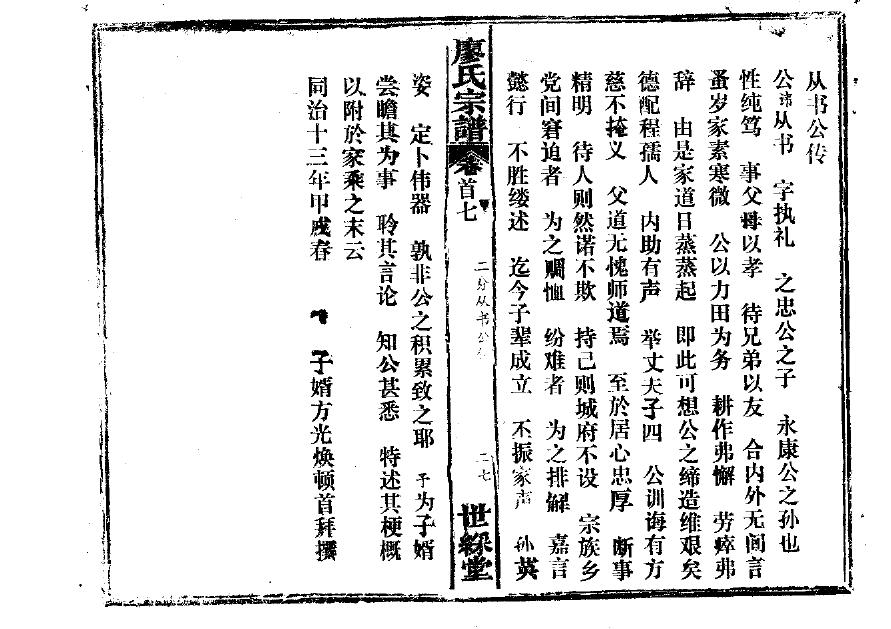 从书公传
公讳从书 字执礼 之忠公之子 永康公之孙也
性纯笃 事父母以孝 待兄弟以友 合内外无间言
蚤岁家素寒微 公以力田为务 耕作弗懈 劳瘁弗
辞 由是家道日蒸蒸起 即此可想公之缔造维艰矣
德配程孺人 内助有声 举丈夫子四 公训诲有方
慈不掩义 父道无愧师道焉 至於居心忠厚 断事
精明 待人则然诺不欺 持己则城府不设 宗族乡
党间窘迫者 为之赒恤 纷难者 为之排解 嘉言
懿行 不胜缕述 迄今子辈成立 不振家声 孙英
廖氏宗谱 卷首七 二分从书公 二七 世綵堂
姿 定卜伟器 孰非公之积累致之耶 予为子婿
尝瞻其为事 聆其言论 知公甚悉 特述其梗概
以附於家乘之末云
同治十三年甲戌春 子婿方光焕顿首拜撰